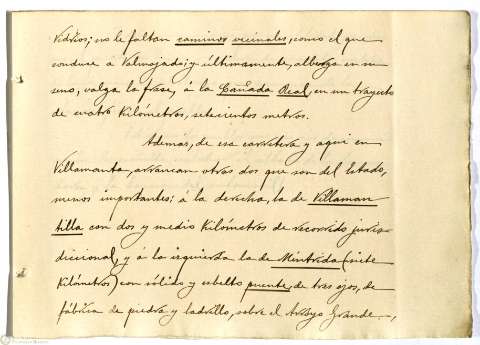 Vidrios; no le faltan caminos vecinales, como el que
conduce á Valmojado; y últimamente, alberga en su
seno, valga la frase, á la Cañada Real, en un trayecto
de cuatro Kilómetros, setecientos metros.
Además, de esa carretera y aqui en
Villamanta, arrancan otras dos que son del Estado,
menos importantes; á la derecha, la de Villaman
tilla con dos y medio Kilómetros de recorrido juris-
diccional, y á la izquierda la de Méntrida (siete
Kilómetros) con sólido y esbelto puente, de tres ojos, de
fábrica de piedra y ladrillo, sobre el Arroyo Grande.,